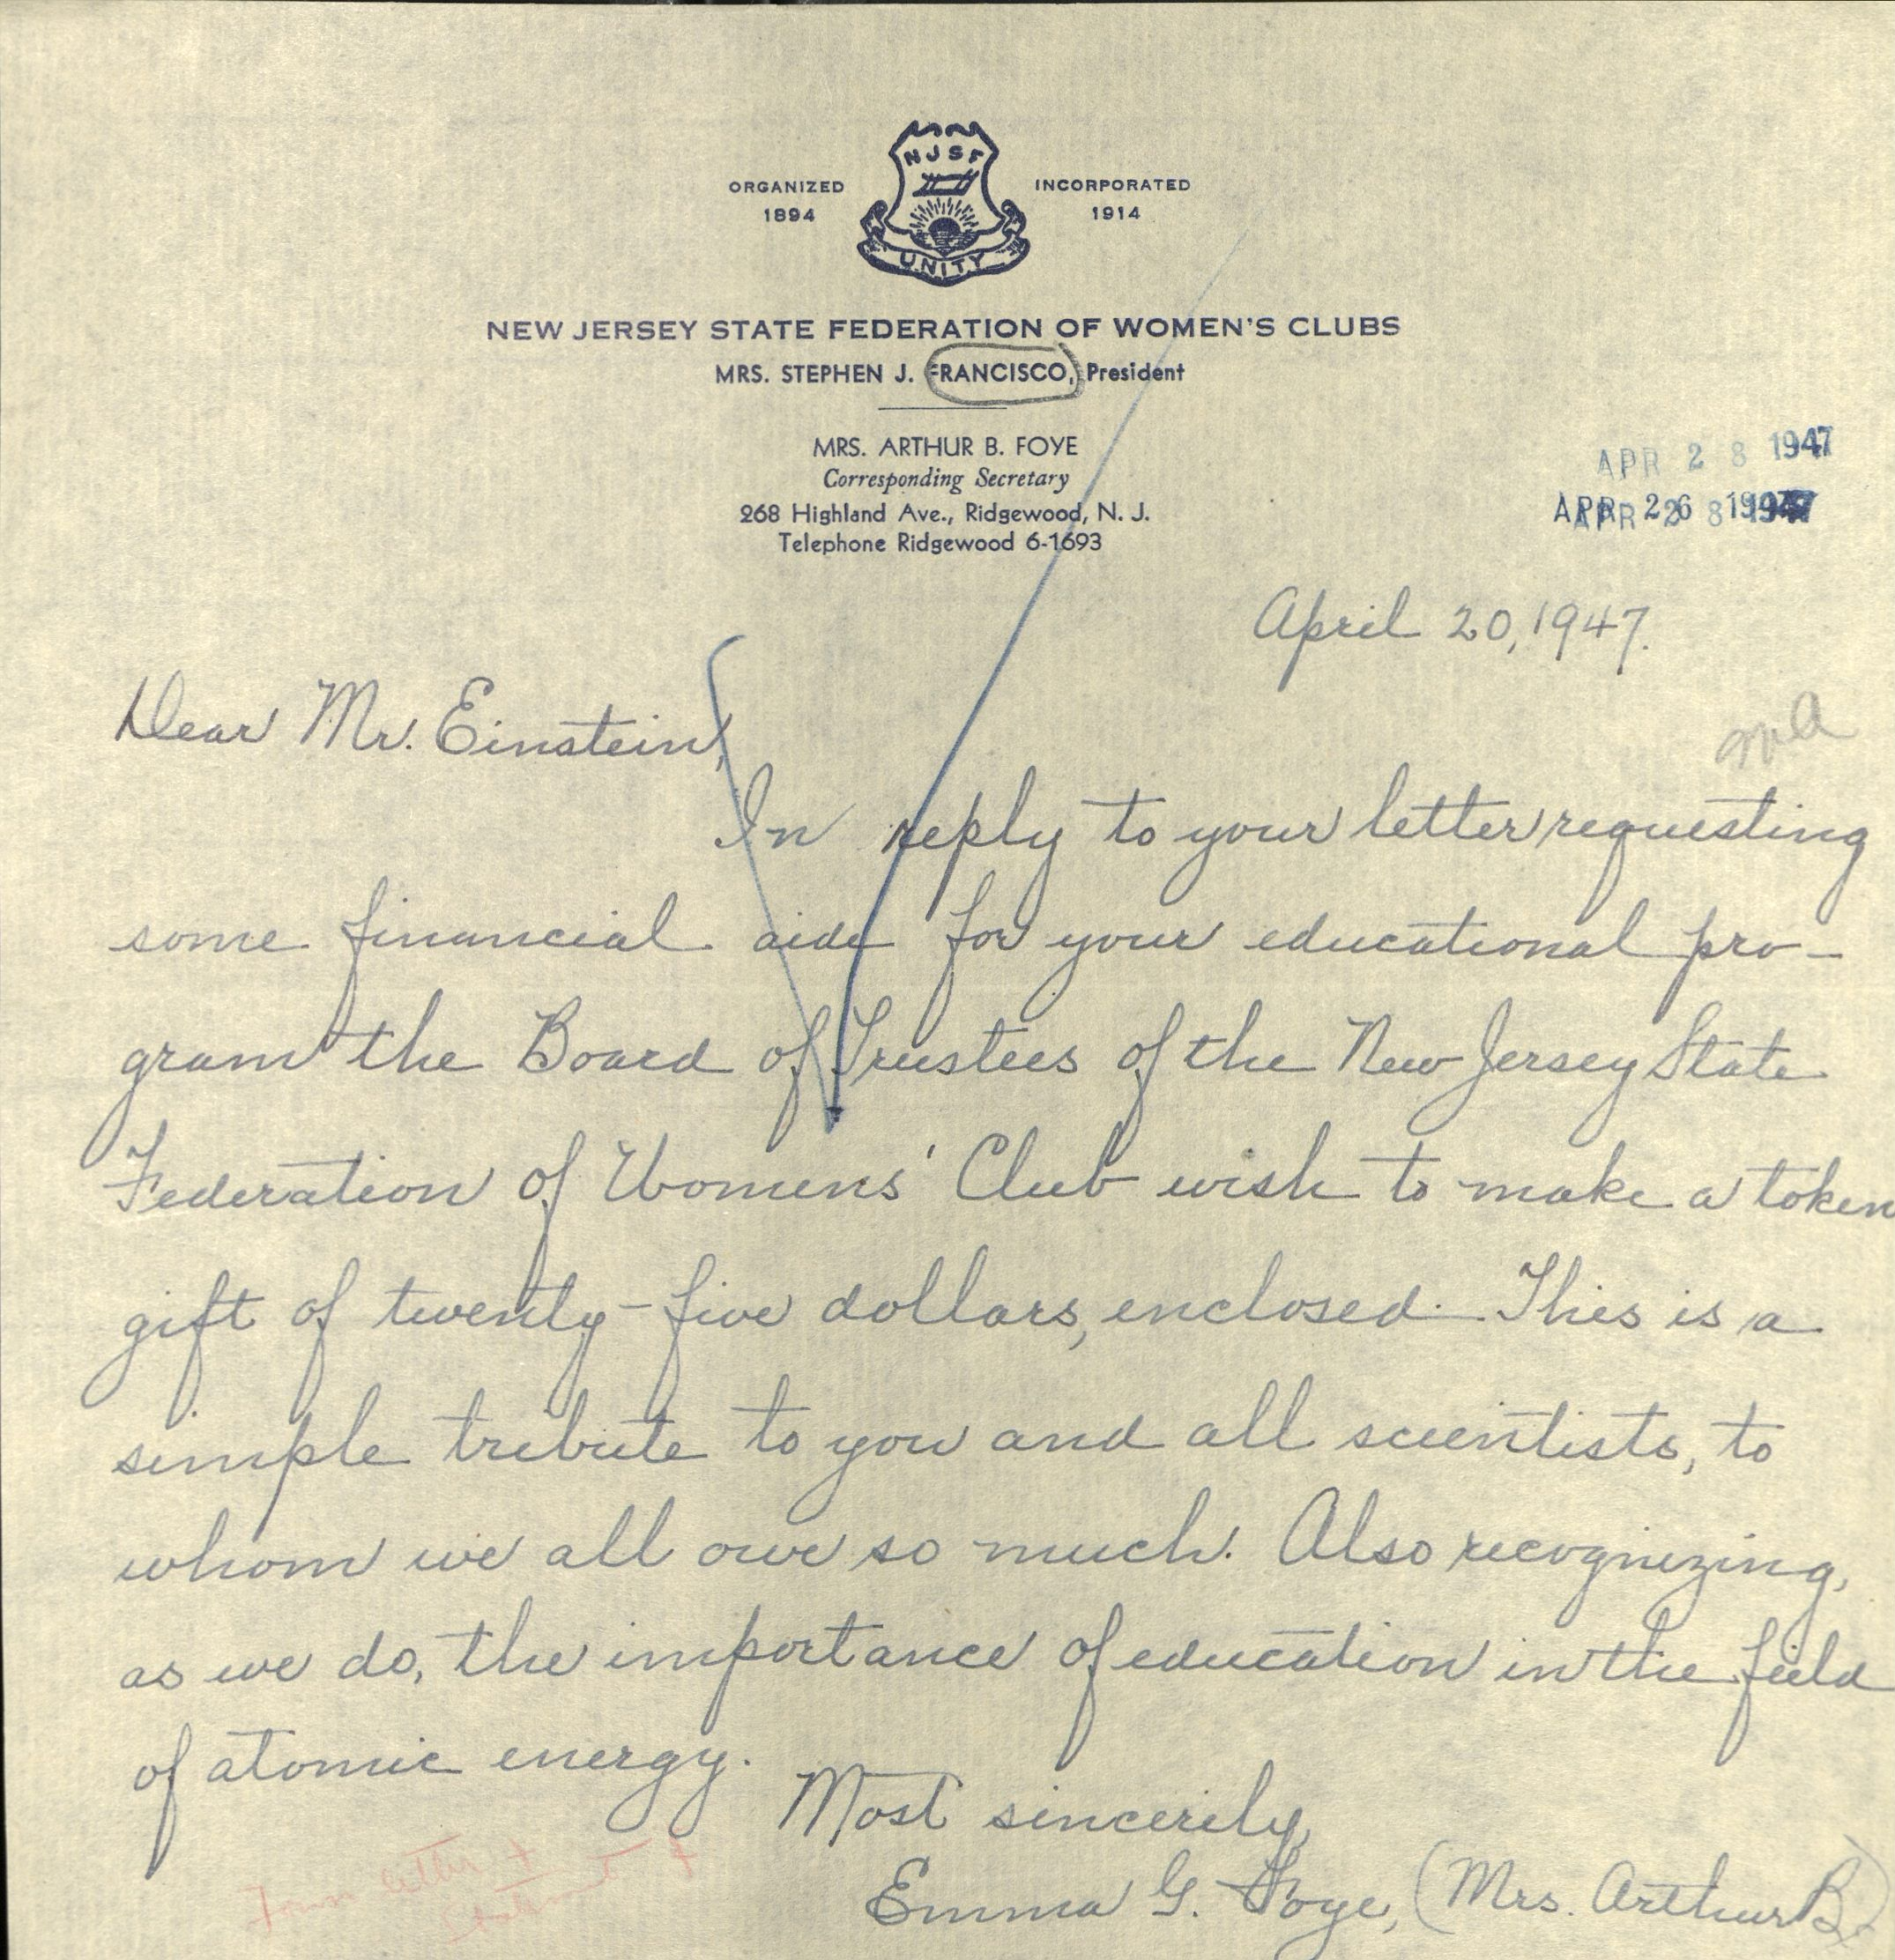 NJSF
UNITY
ORGANIZED
1894
INCORPORATED
1914
NEW JERSEY STATE FEDERATION OF WOMEN'S CLUBS
MRS. STEPHEN J. FRANCISCO, President
MRS. ARTHUR B. FOYE
Corresponding Secretary
268 Highland Ave., Ridgewood, N. J.
Telephone Ridgewood 6-1693
APR 28 1947
APR 26
April 20, 1947.
Dear Mr. Einstein,
In reply to your letter requesting
some financial aide for your educational pro-
gram the Board of Trustees of the New Jersey State
Federation of Womens' Club wish to make a token
gift of twenty-five dollars, enclosed. This is a
simple tribute to you and all scientists, to
whom we all owe so much. Also recognizing,
as we do, the importance of education in the field
of atomic energy.
Most sincerely,
Emma G. Foye, (Mrs. Arthur B.)